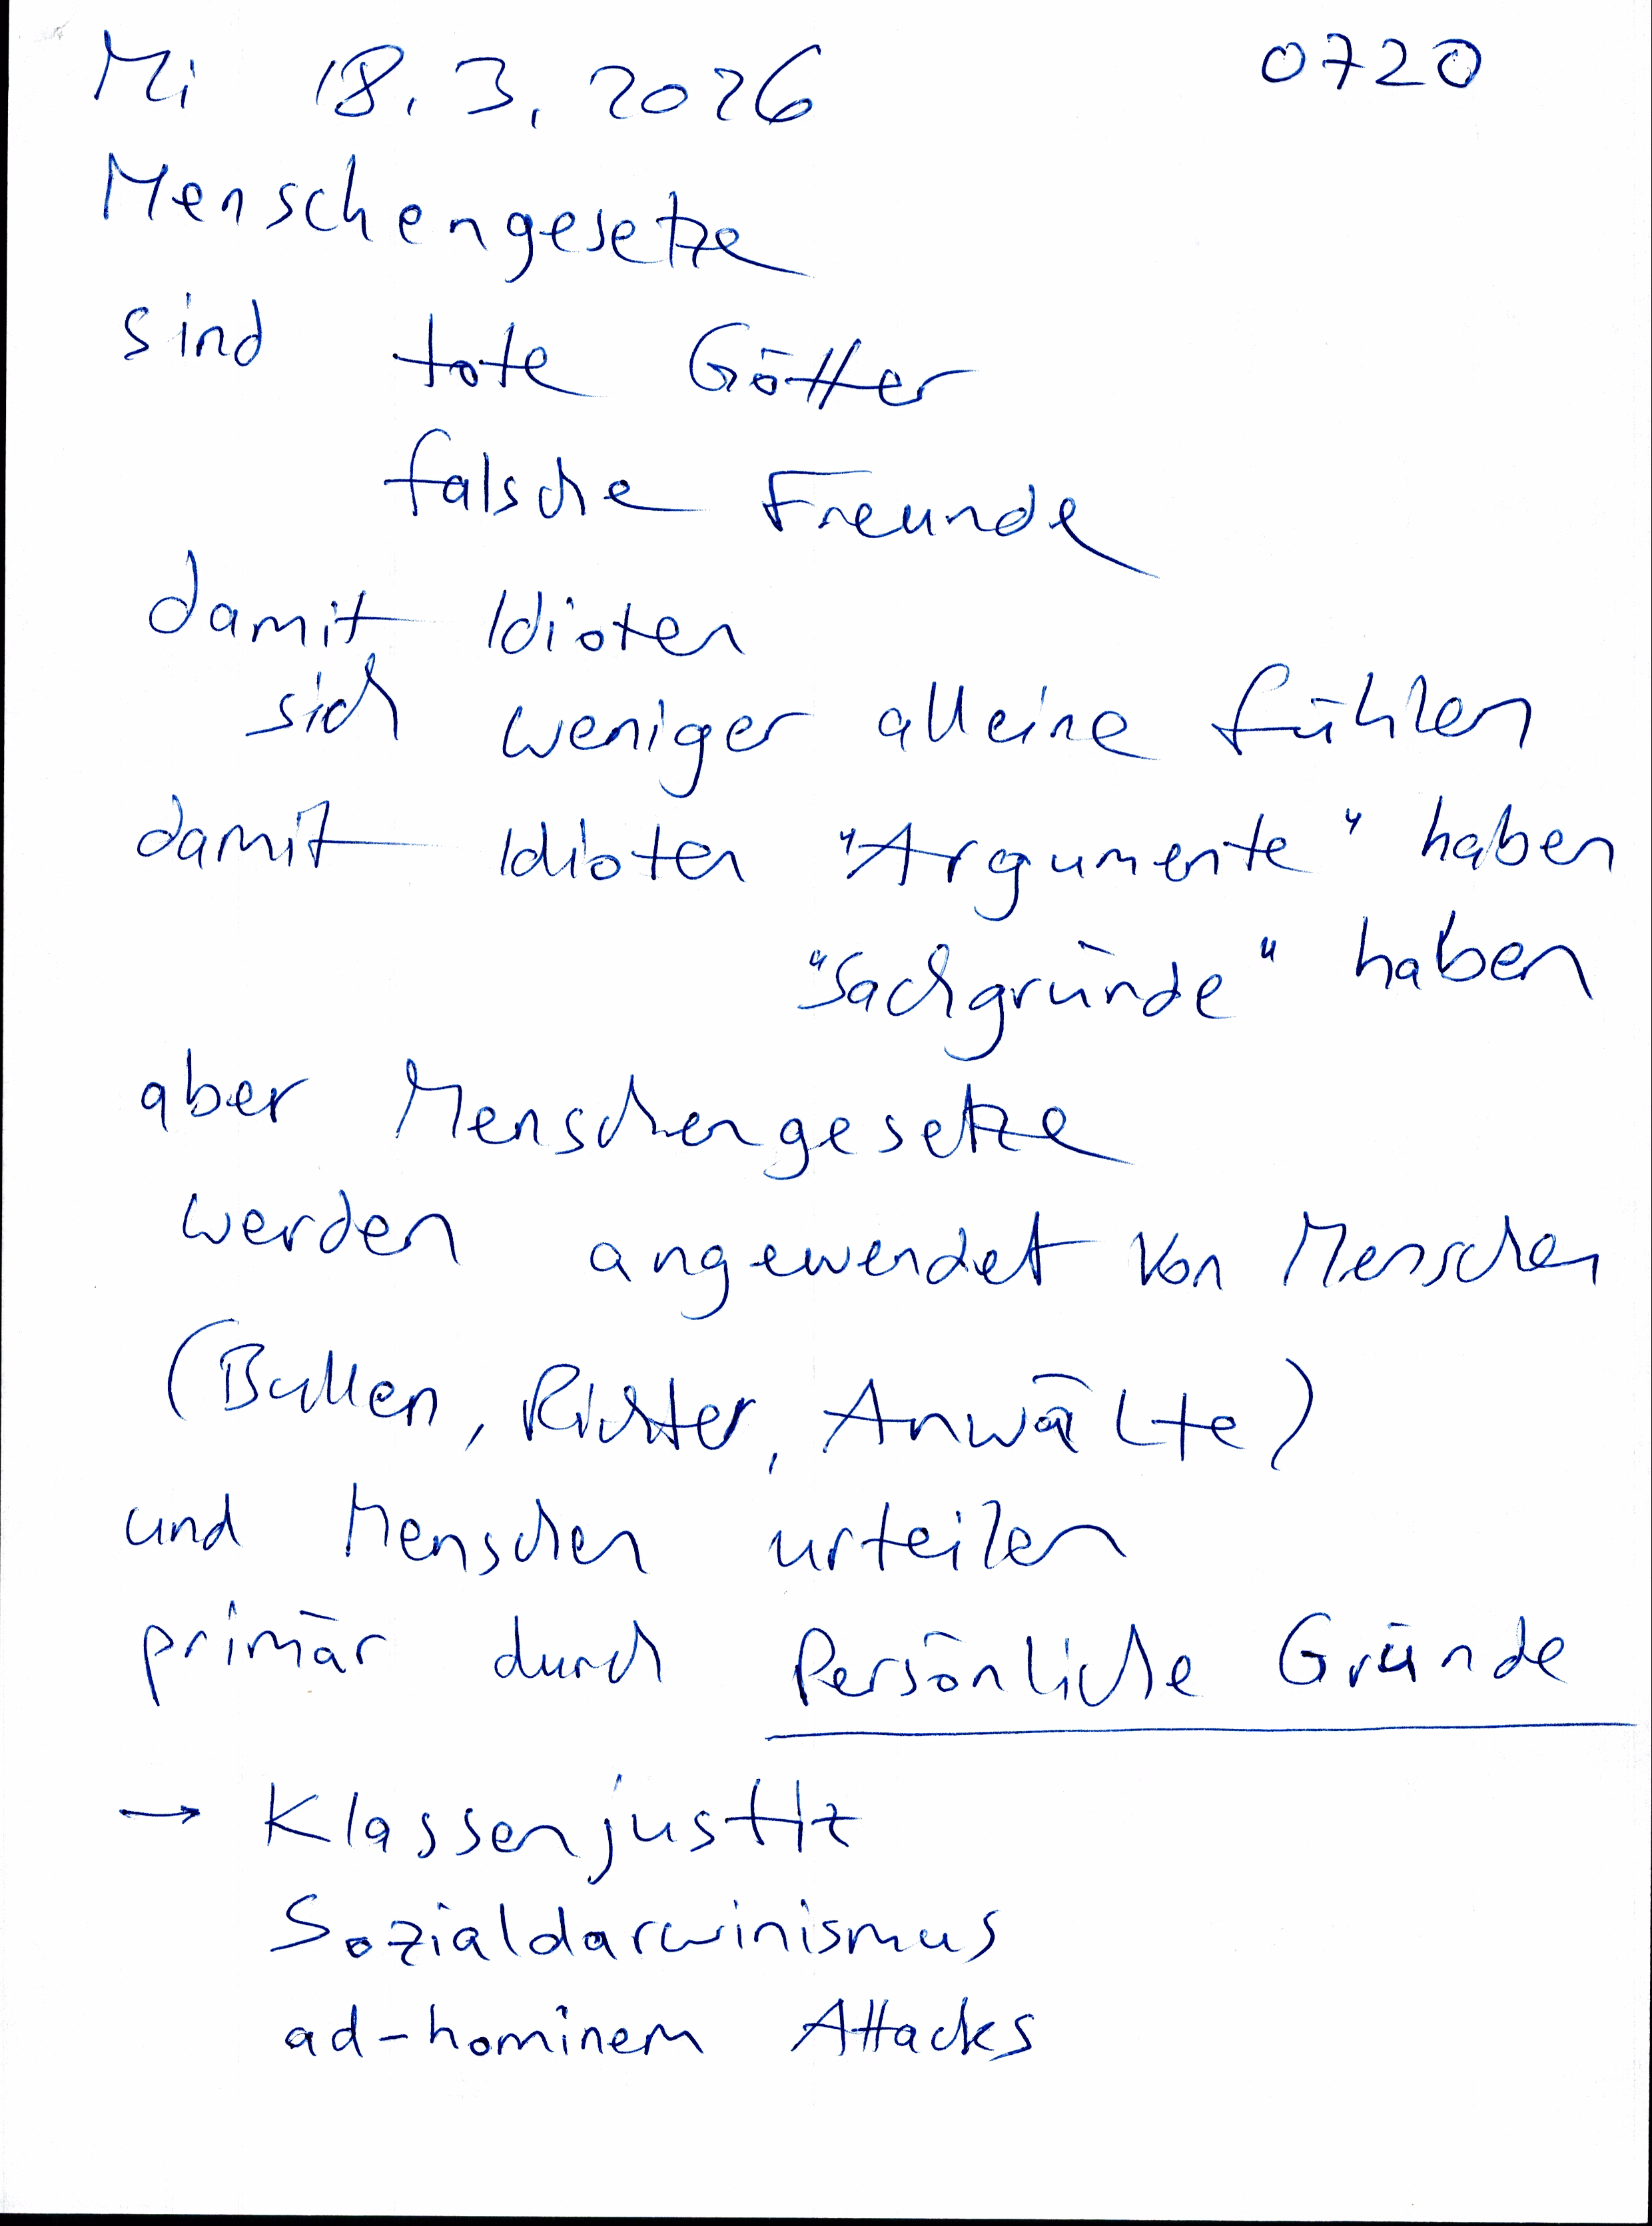 Mi 18.3.2026 0720
Menschengesetze
sind tote Götter
falsche Freunde
damit Idioten
sich weniger alleine fühlen
damit Idioten "Argumente" haben
"Sachgründe" haben
aber Menschengesetze
werden angewendet von Menschen
(Bullen, Richter, Anwälte)
und Menschen urteilen
primär durch Persönliche Gründe
→ Klassenjustiz
Sozialdarwinismus
ad-hominem Attacks